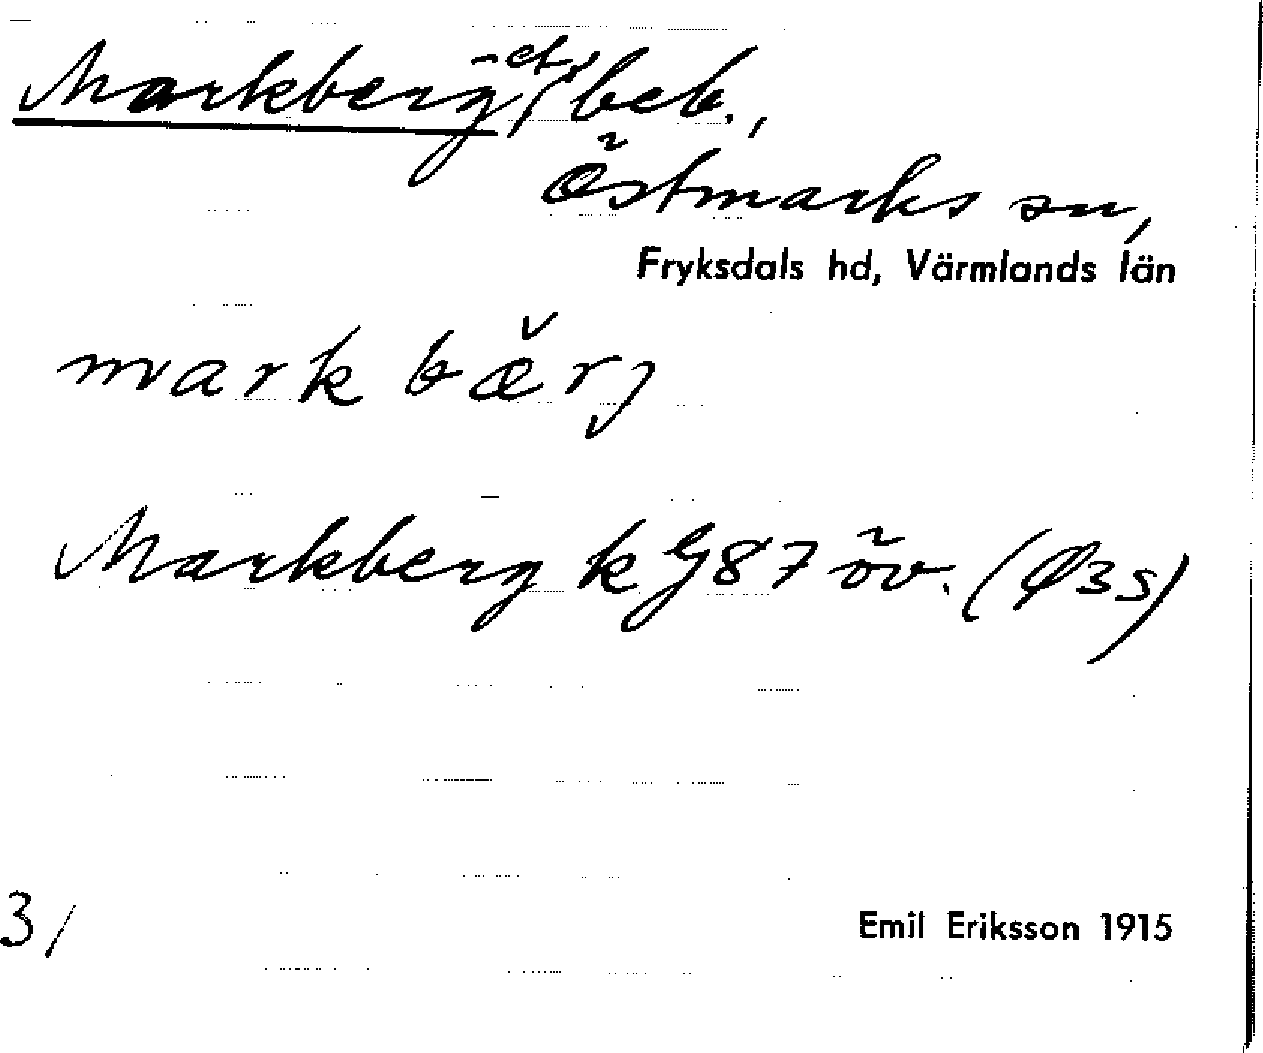 Markberg, -et, beb.,
Östmarks sn,
Fryksdals hd, Värmlands län
mark bærj
Markberg k G87 öv. (Ø3S)
3/
Emil Eriksson 1915